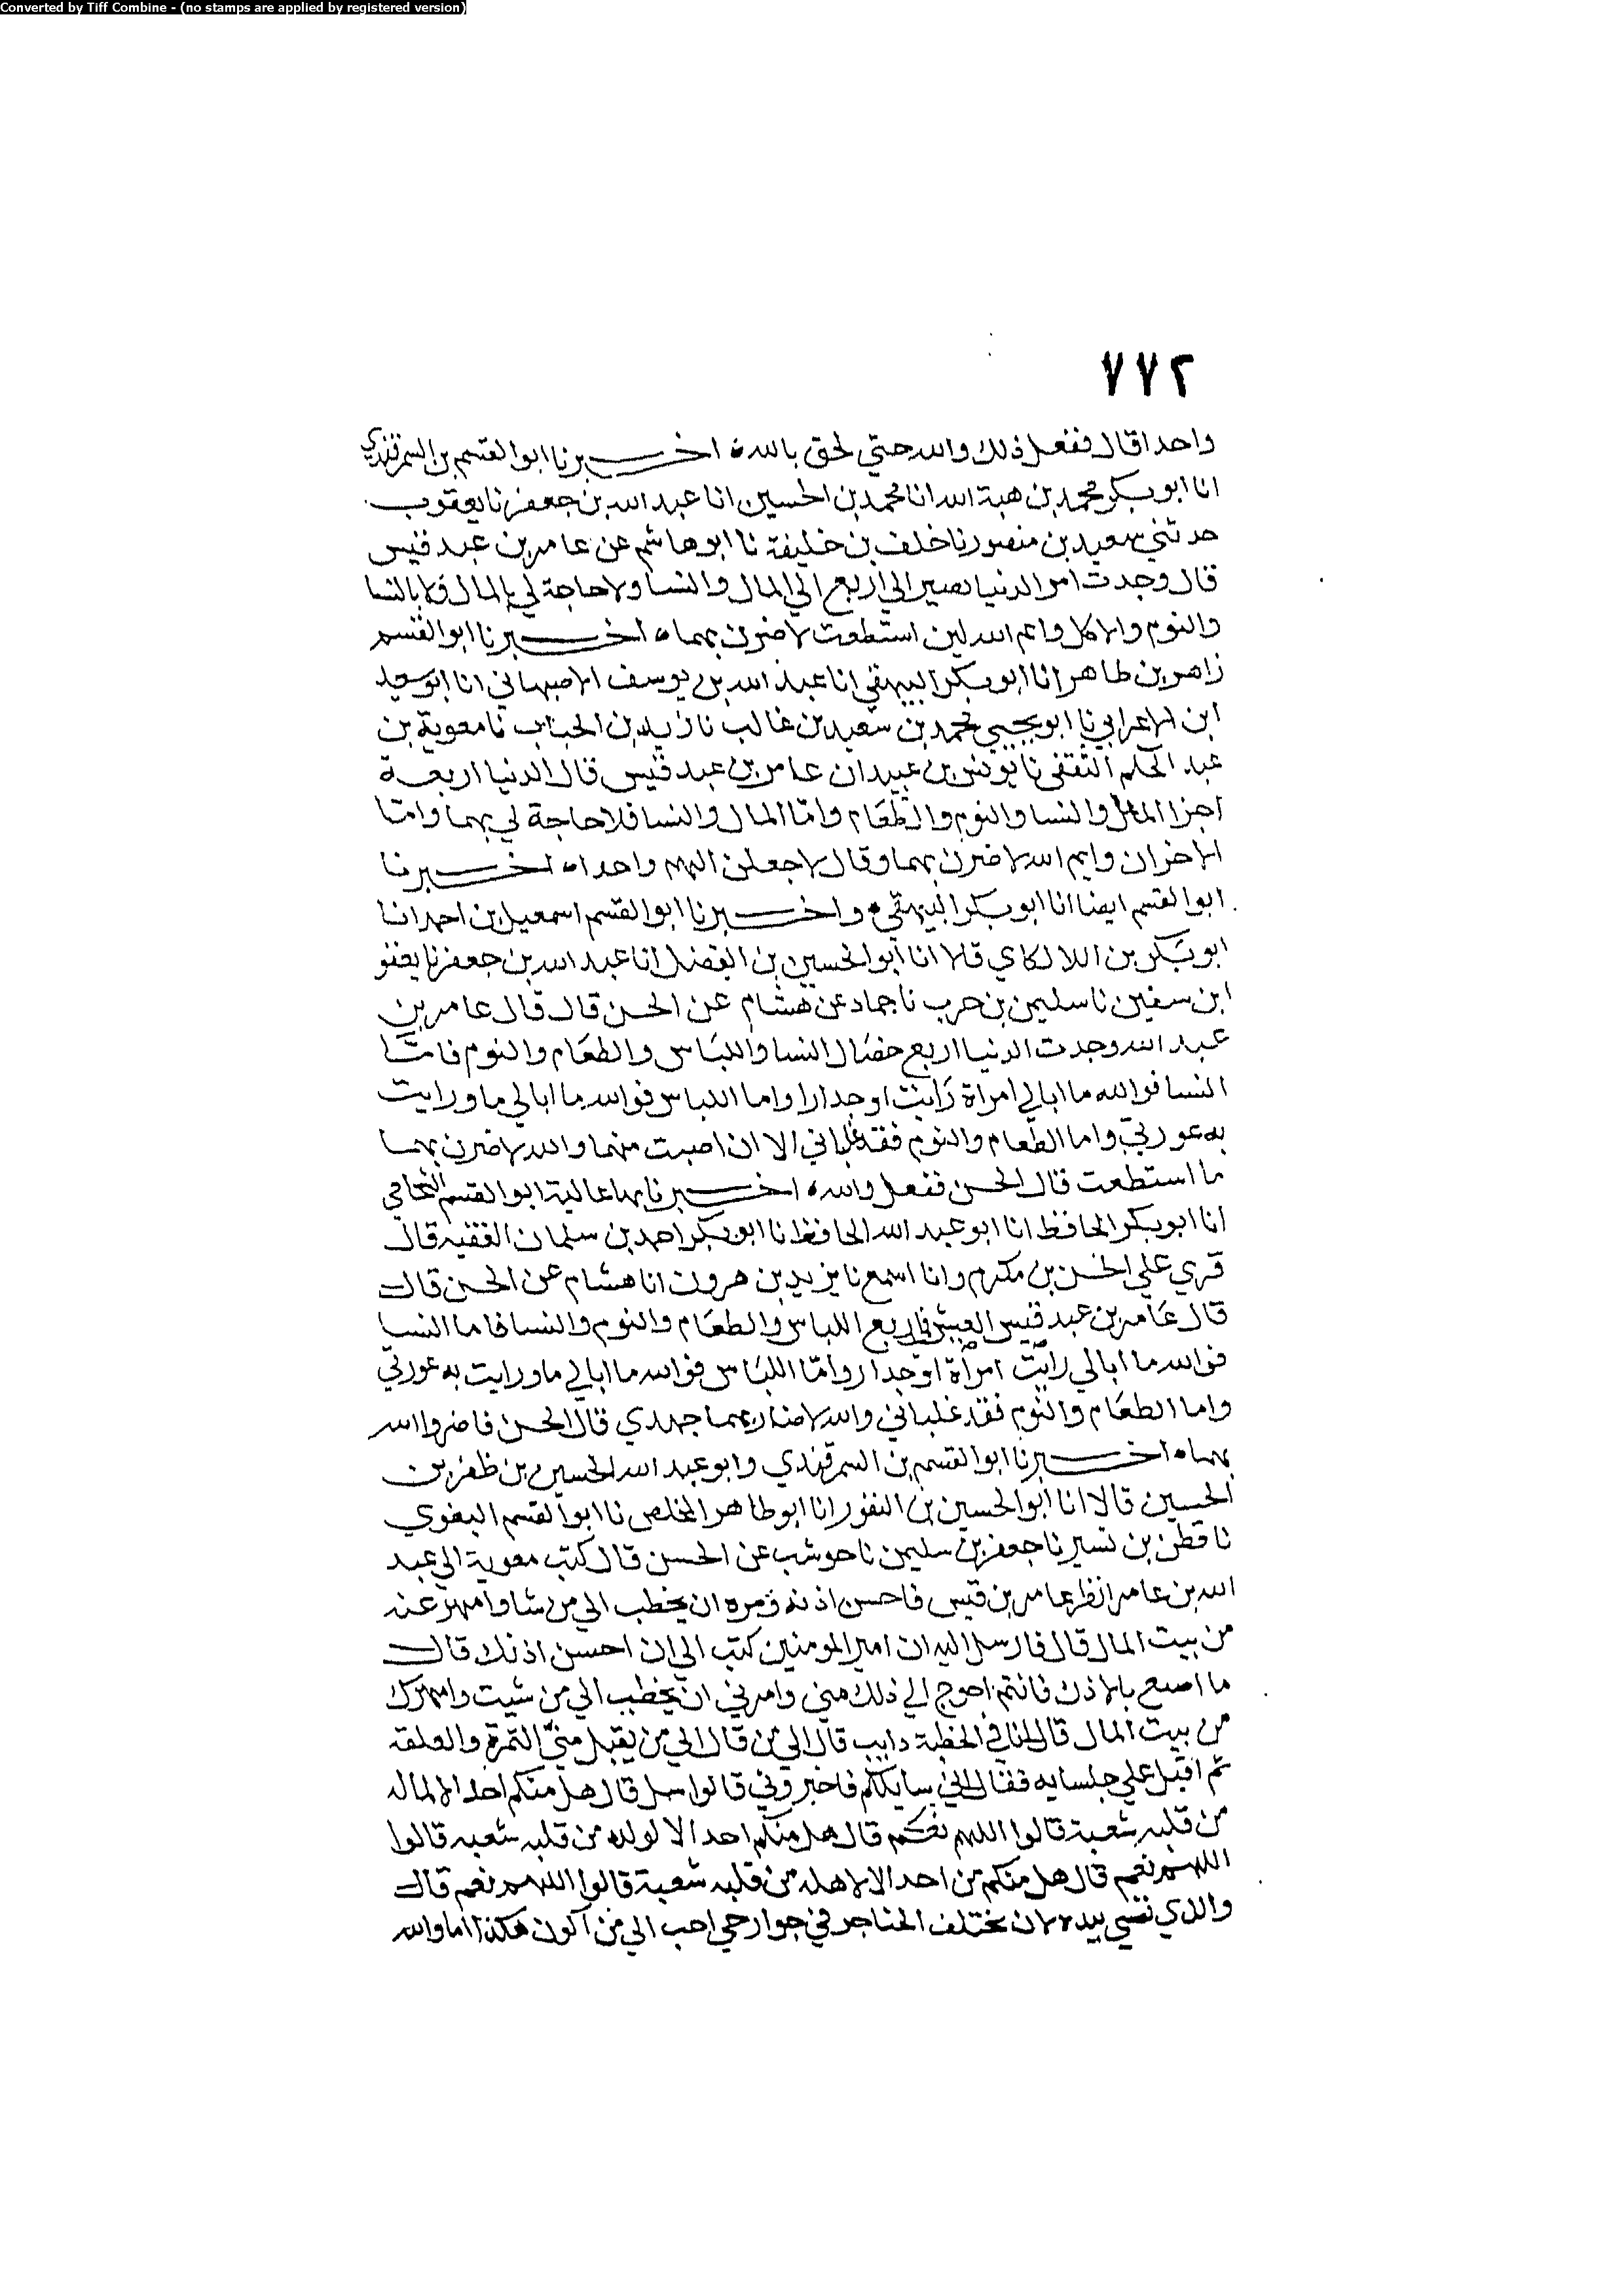 Converted by Tiff Combine - (no stamps are applied by registered version)
٧٧٢
واحدا قال ففعل ذلك والله حتي لحق بالله ه اخبرنا ابو القسم بن السمرقندي
انا ابو بكر محمد بن هبة الله انا محمد بن الحسين انا عبد الله بن جعفر نا يعقوب
حدثني سعيد بن منصور نا خلف بن خليفة نا ابو هاشم عن عامر بن عبد قيس
قال وجدت امر الدنيا يصير الي اربع الي المال والنسا ولا حاجة لي بالمال ولا بالنسا
والنوم والاكل وايم الله لين استطعت لاضرن بهما ه اخبرنا ابو القسم
زاهر بن طاهر انا ابو بكر البيهقي انا عبد الله بن يوسف الاصبهاني انا ابو سعيد
ابن الاعرابي نا ابو يحيي محمد بن سعيد بن غالب نا زيد بن الحباب نا معوية بن
عبد الحكم الثقفي نا يونس بن عبيد ان عامر بن عبد قيس قال الدنيا اربعة
اجزا المال والنسا والنوم والطعام واما المال والنسا فلا حاجة لي بهما واما
الاخران وايم الله لاضرن بهما وقال لاجعلن الهم واحدا ه اخبرنا
ابو القسم ايضا انا ابو بكر البيهقي ه واخبرنا ابو القسم اسمعيل بن احمد انا
ابو بكر بن اللالكاي قالا انا ابو الحسين بن الفضل انا عبد الله بن جعفر نا يعقو
ابن سفين نا سليمن بن حرب نا حماد عن هشام عن الحسن قال قال عامر بن
عبد الله وجدت الدنيا اربع خصال النسا واللباس والطعام والنوم فاما
النسا فوالله ما ابالي امراة رايت او جدارا واما اللباس فوالله ما ابالي ما ورايت
به عورتي واما الطعام والنوم فقد غلباني الا ان اصبت منهما والله لاضرن بهما
ما استطعت قال الحسن ففعل والله ه اخبرنا بها عالية ابو القسم الشحامي
انا ابو بكر الحافظ انا ابو عبد الله الحافظ نا ابو بكر احمد بن سلمان الفقيه قال
قري علي الحسن بن مكرم وانا اسمع نا يزيد بن هرون انا هشام عن الحسن قال
قال عامر بن عبد قيس العيش في اربع اللباس والطعام والنوم والنسا فاما النسا
فوالله ما ابالي رايت امراة او جدار واما اللباس فوالله ما ابالي ما ورايت به عورتي
واما الطعام والنوم فقد غلباني والله لاضارن بهما جهدي قال الحسن فاضر والله
بهما ه اخبرنا ابو القسم بن السمرقندي وابو عبد الله الحسين بن ظفر بن
الحسين قالا انا ابو الحسين بن النقور انا ابو طاهر المخلص نا ابو القسم البغوي
نا قطن بن نسير نا جعفر بن سليمن نا حوشب عن الحسن قال كتب معوية الي عبد
الله بن عامر انظر عامر بن قيس فاحسن اذنه ومره ان يخطب الي من شا وامهر عنه
من بيت المال قال فارسل اليه ان امير المومنين كتب الي ان احسن اذنك قال
ما اصنع بالاذن فانتم احوج الي ذلك مني وامرني ان يخطب الي من شيت وامهرك
من بيت المال قال انا في الخطبة دايب قال الي من قال الي من يقبل مني التمرة والفلقة
ثم اقبل علي جلسايه فقال اني سايلكم فاخبروني قالوا سل قال هل منكم احد الا لماله
من قلبه شعبة قالوا اللهم نعم قال هل منكم احد الا لولده من قلبه شعبه قالوا
اللهم نعم قال هل منكم من احد الا لاهله من قلبه شعبة قالوا اللهم نعم قال
والذي نفسي بيده لان تختلف الخناجر في جوارحي احب الي من اكون هكذا اما والله